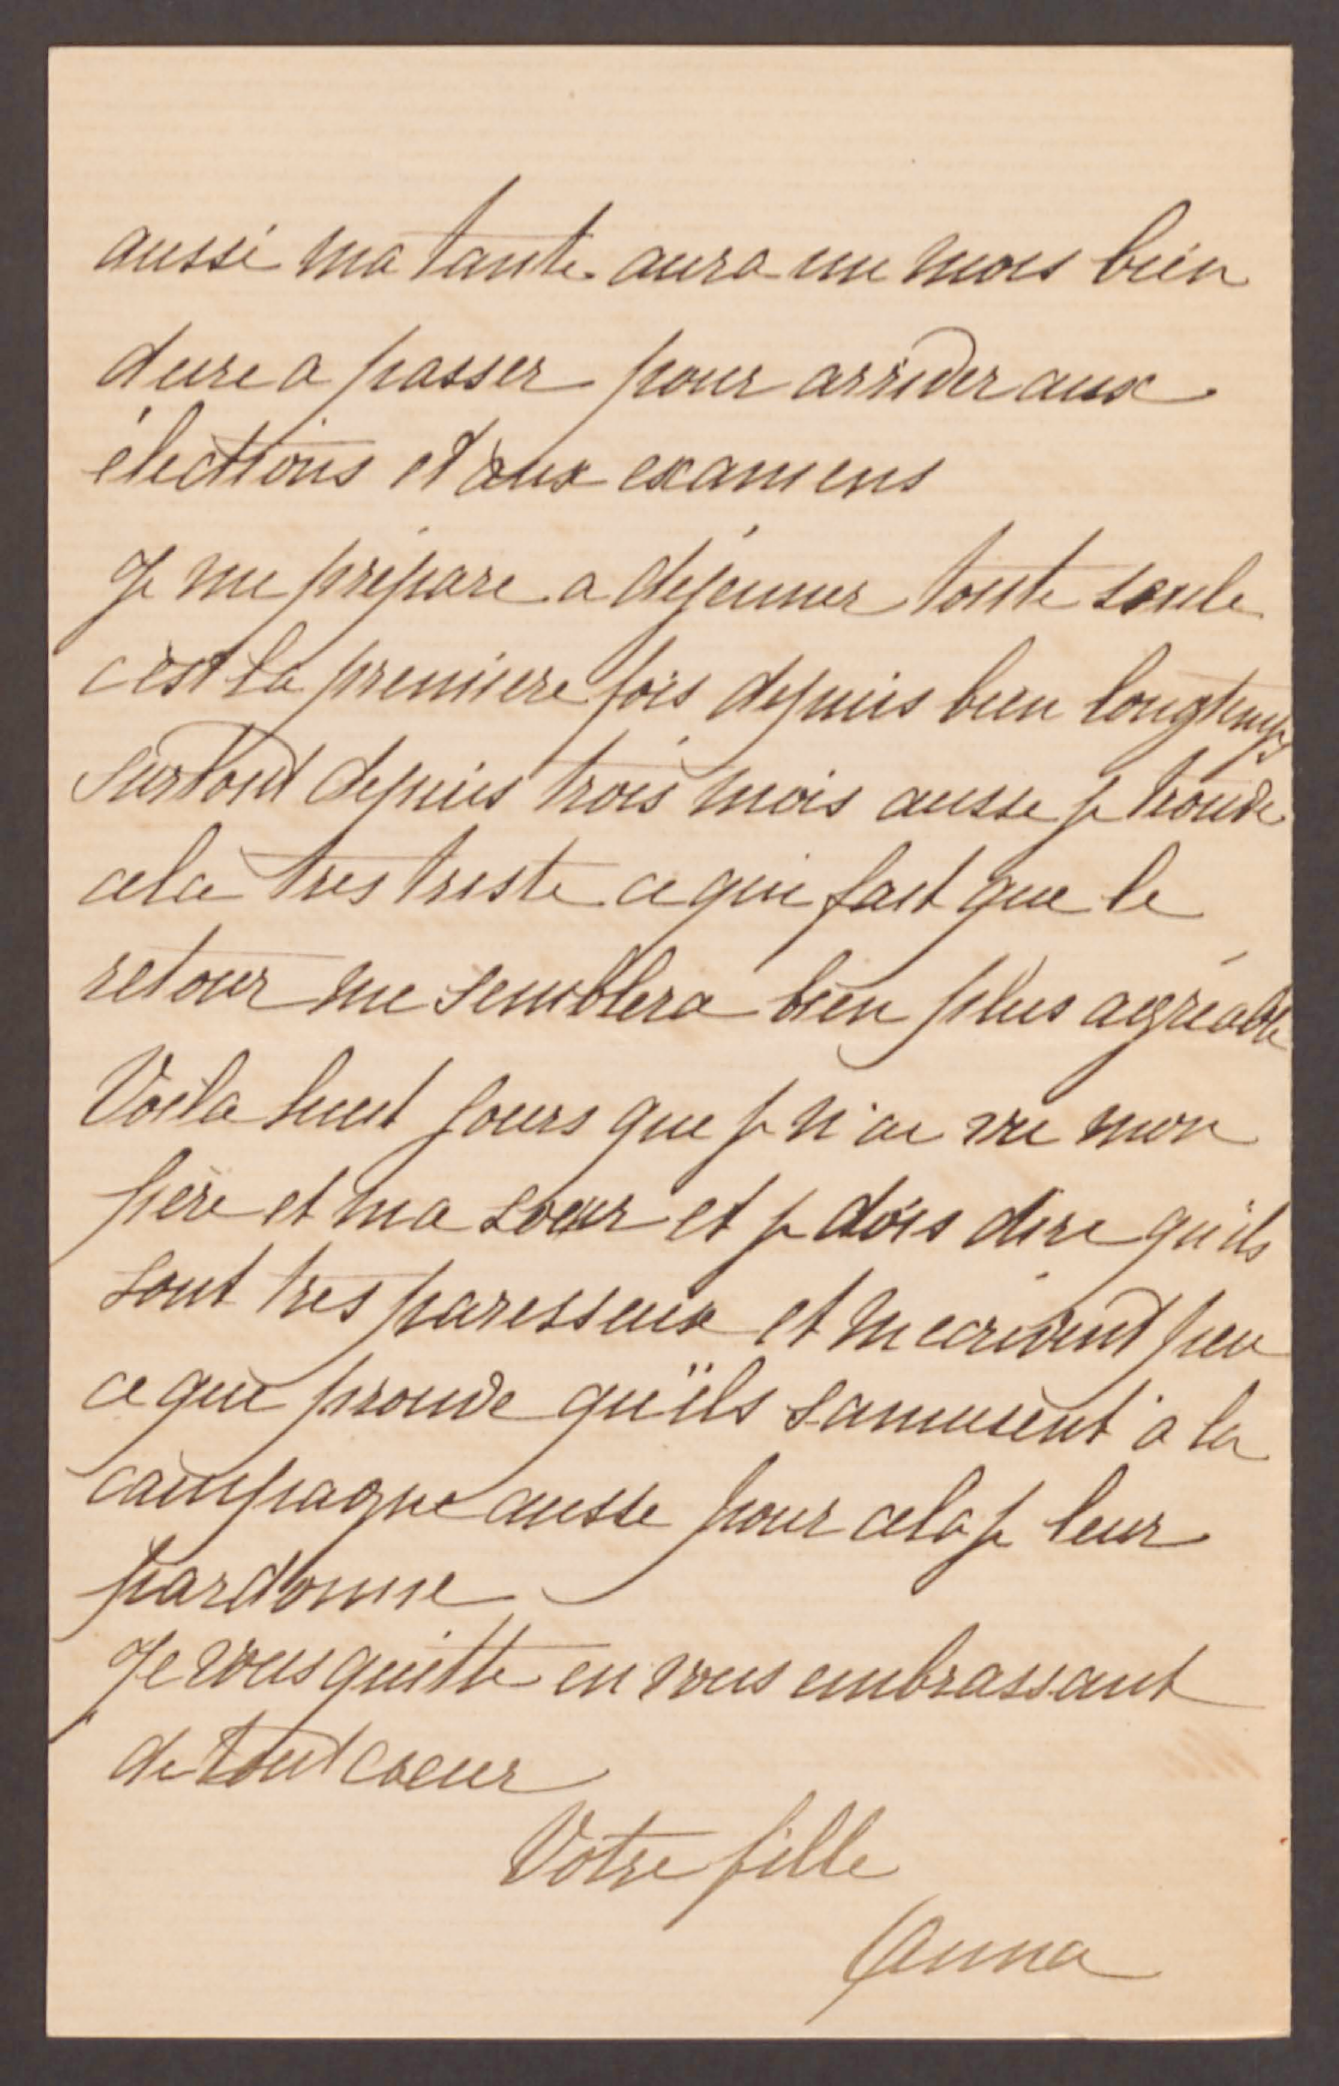 aussi ma tante aura un mois bien
dure a passer pour arriver aux
élections et aux examens
Je me prépare a déjeuner toute seule
c'est la premiere fois depuis bien longtemps
surtout depuis trois mois aussi je trouve
cela tres triste ce qui fait que le
retour me semblera bien plus agréable
Voila huit jours que je n'ai vu mon
père et ma soeur et je dois dire qu'ils
sont tres paresseux et m'ecrivent peu
ce qui prouve qu'ils s'amusent à la
campagne aussi pour cela je leur
pardonne
Je vous quitte en vous embrassant
de tout coeur
Votre fille
Anna